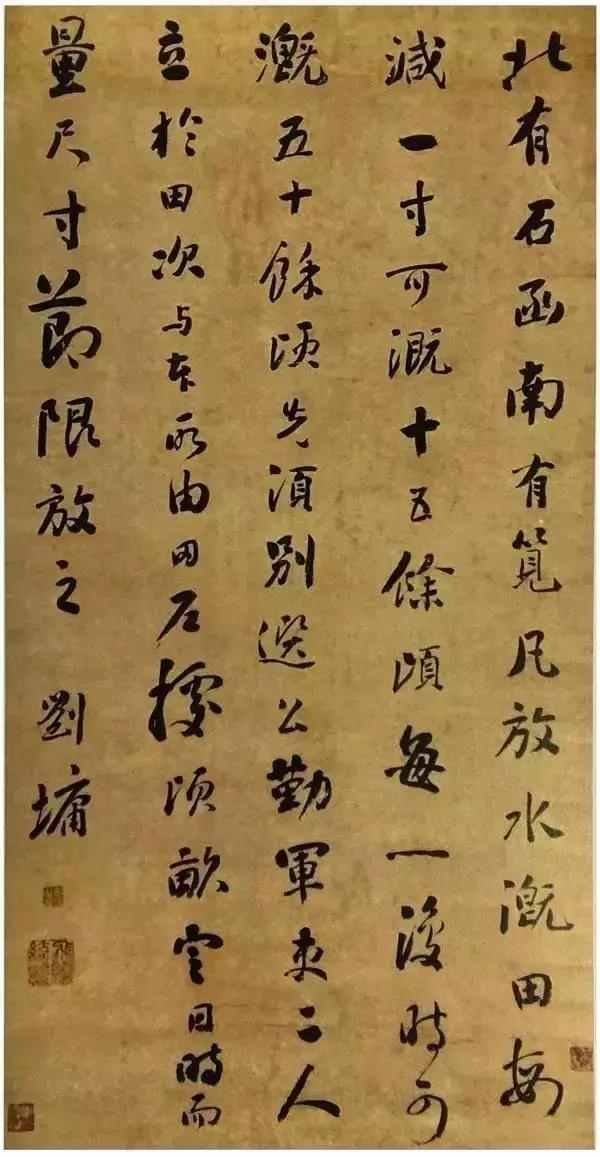 北有石函南有筧凡放水溉田每
減一寸可溉十五餘頃每一復時可
溉五十餘頃先須別選公勤軍吏二人
立於田次与本所由田石據頃畝定日時而
量尺寸節限放之 劉墉